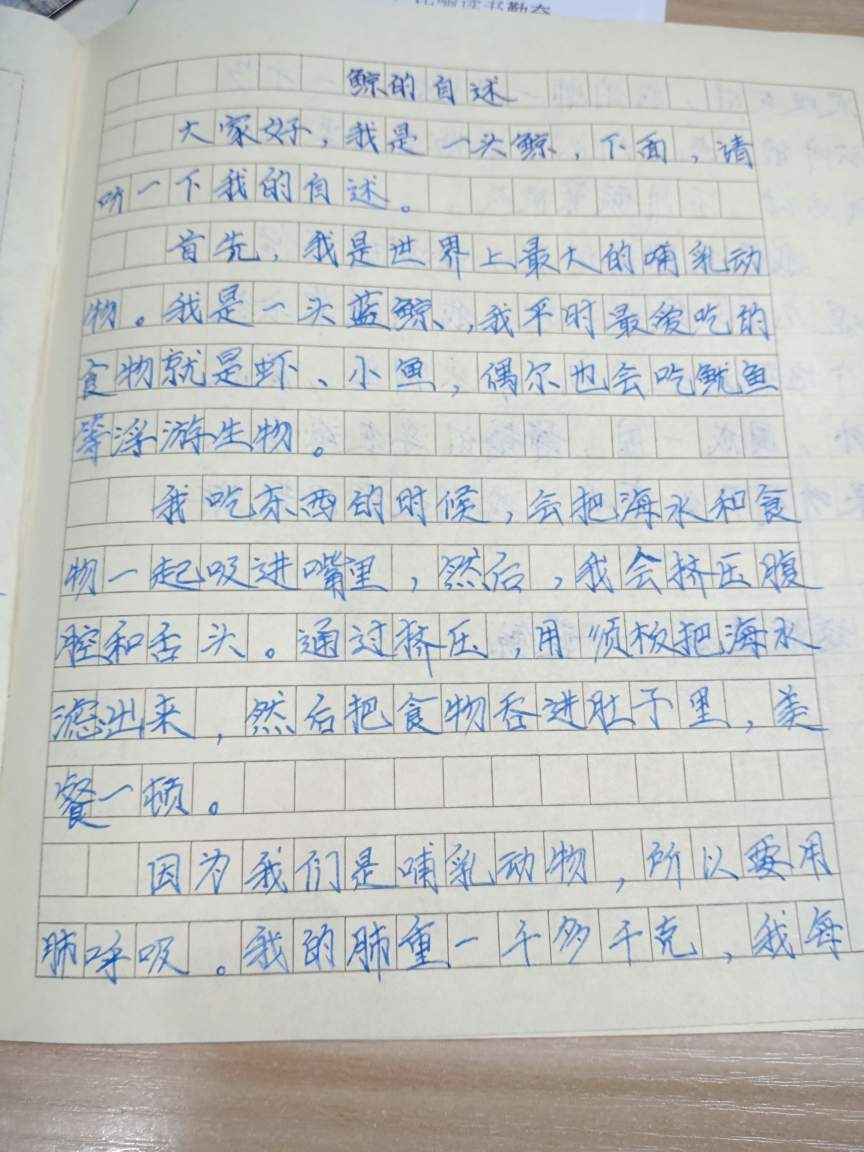 鲸的自述
大家好，我是一头鲸，下面，请
听一下我的自述。
首先，我是世界上最大的哺乳动
物。我是一头蓝鲸，我平时最爱吃的
食物就是虾、小鱼，偶尔也会吃鱿鱼
等浮游生物。
我吃东西的时候，会把海水和食
物一起吸进嘴里，然后，我会挤压腹
腔和舌头。通过挤压，用须板把海水
滤出来，然后把食物吞进肚子里，美
餐一顿。
因为我们是哺乳动物，所以要用
肺呼吸。我的肺重一千多千克，我每